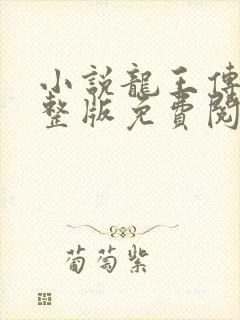 小説龍王傳
整版免費閱
葡萄紫